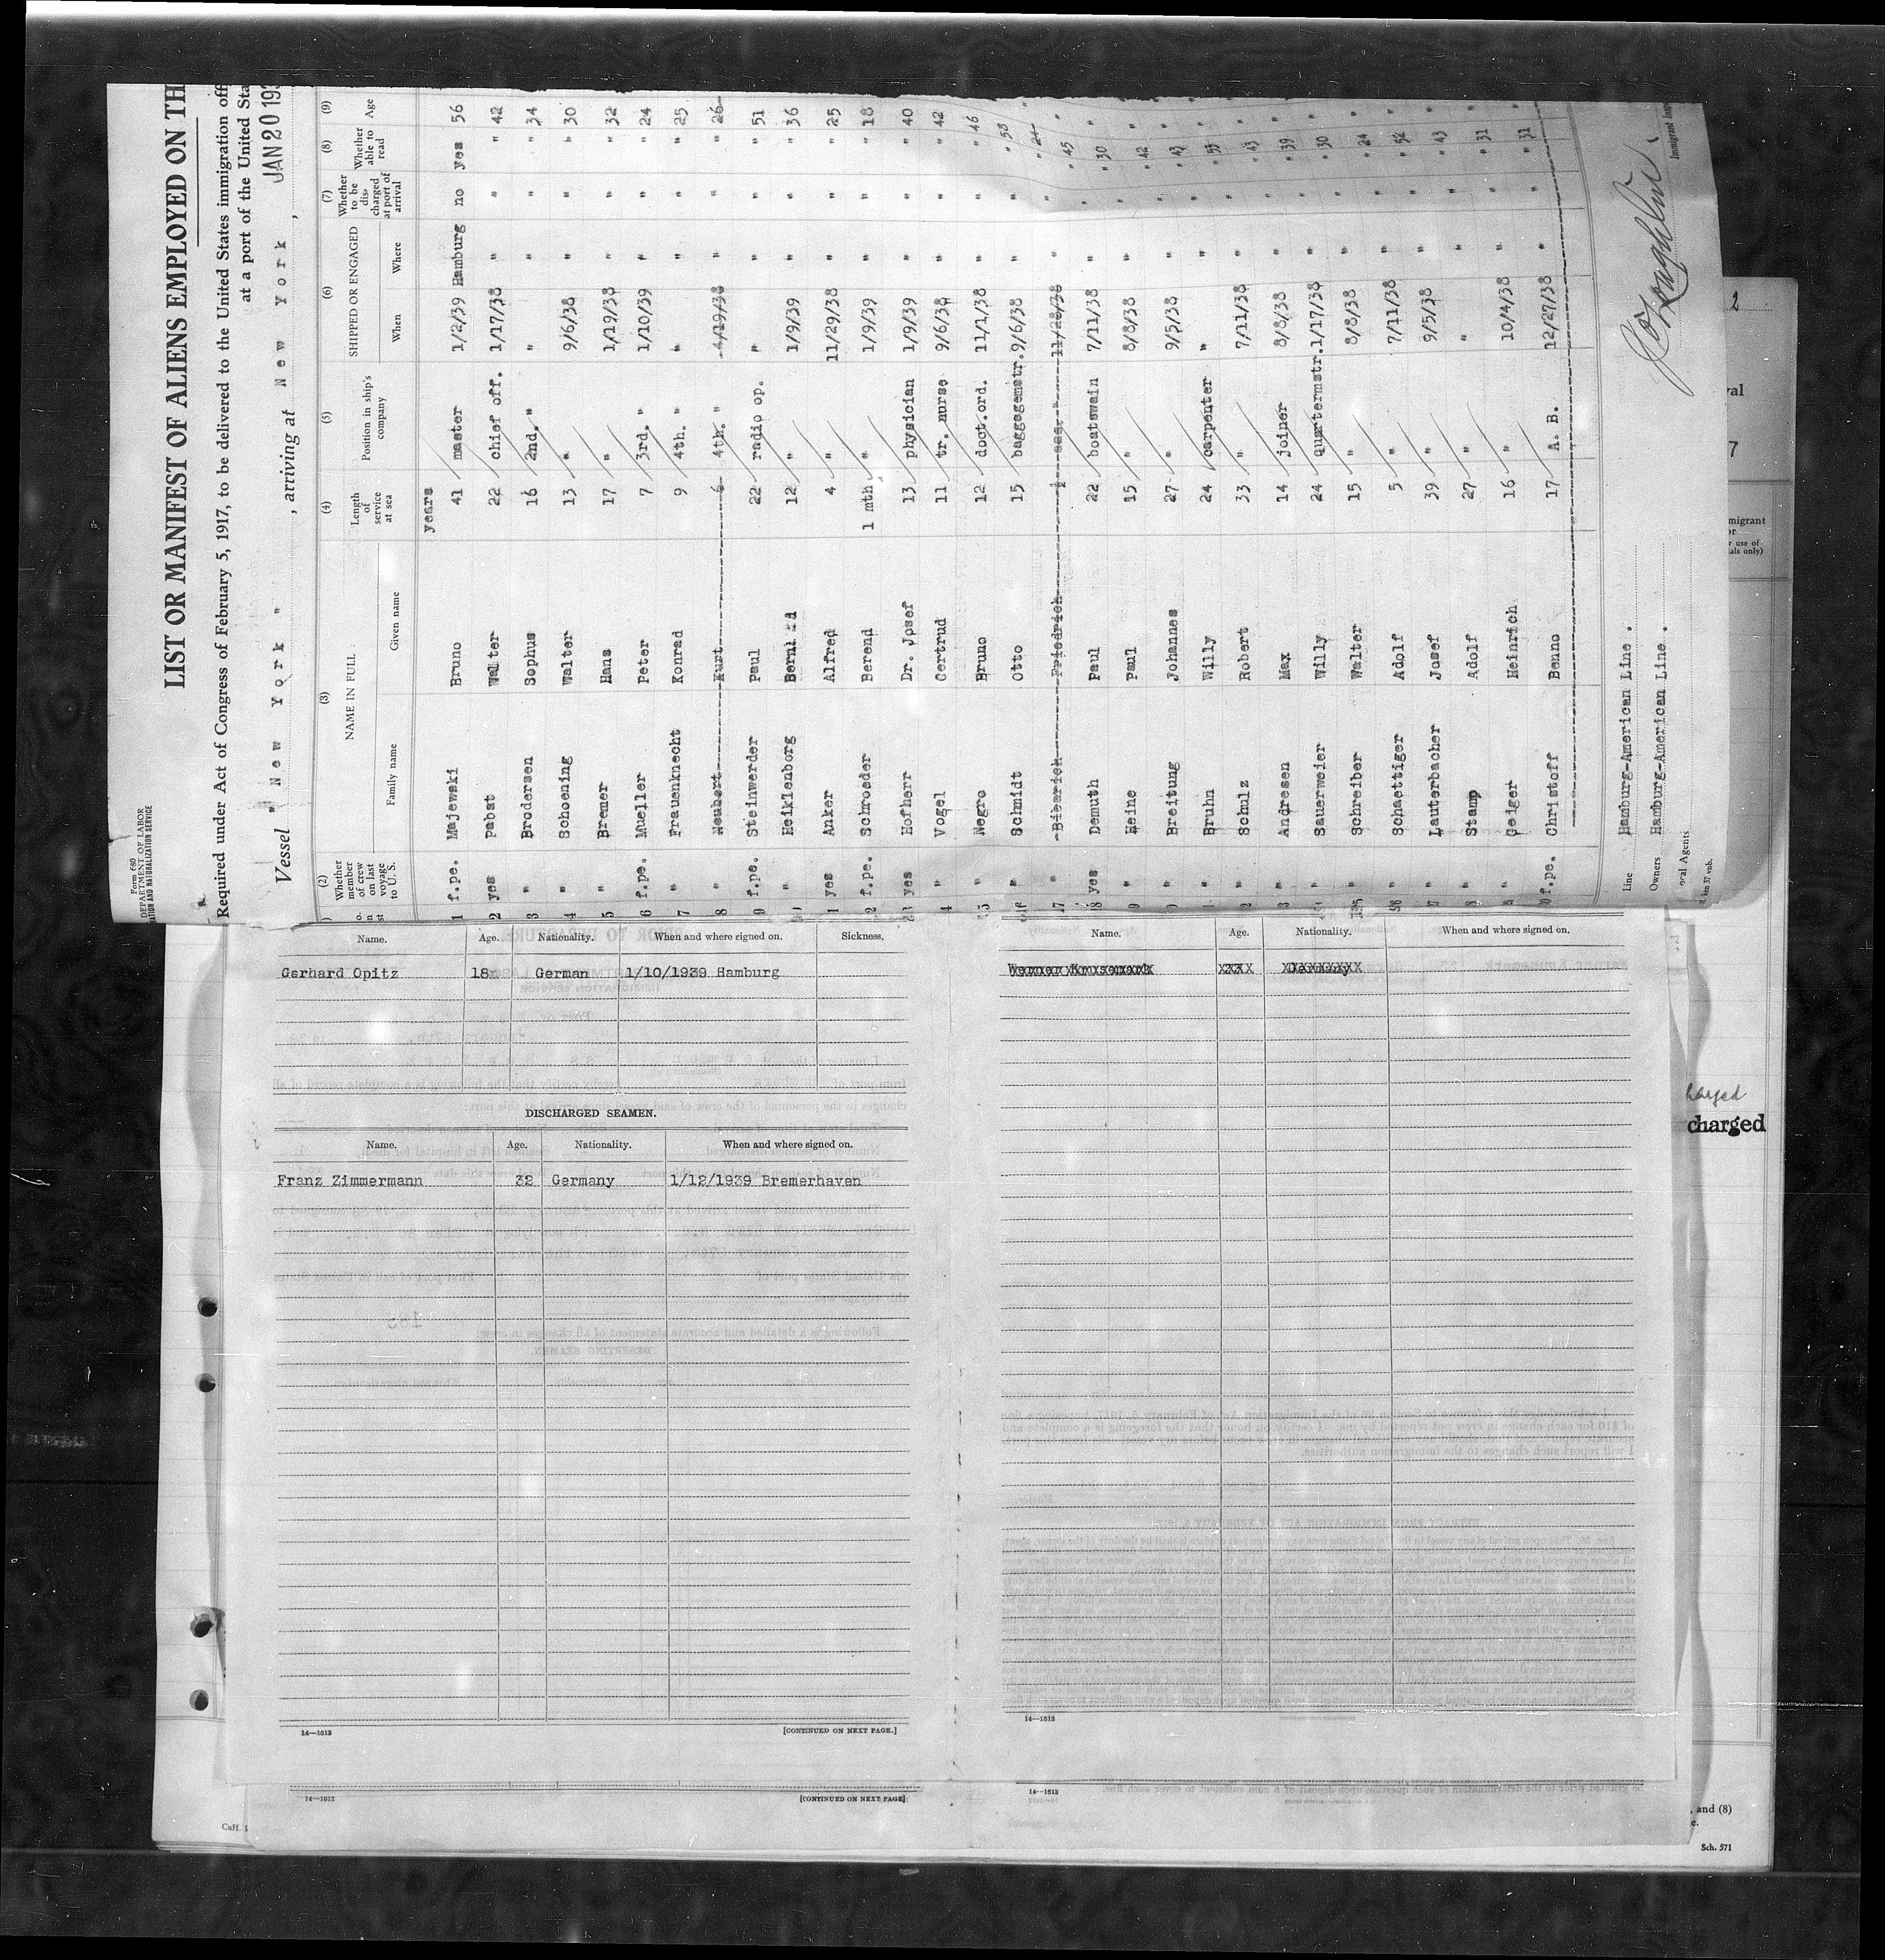 Form 680
DEPARTMENT OF LABOR
LIST OR MANIFEST OF ALIENS EMPLOYED ON TH
Required under Act of Congress of February 5, 1917, to be delivered to the United States immigration off
at a port of the United Sta
Vessel " New York " , arriving at New York , JAN 20 193
(2) (3) (4) (5) (6) (7) (8) (9)
Whether member of crew on last voyage to U. S. NAME IN FULL Length of service at sea Position in ship's company SHIPPED OR ENGAGED Whether to be discharged at port of arrival Whether able to read Age
Family name Given name When Where
years
1 f.pe. Majewski Bruno 41 master 1/2/39 Hamburg no yes 56
2 yes Pabst Walter 22 chief off. 1/17/38 " " " 42
3 " Brodersen Sophus 16 2nd. " " " " " 34
4 " Schoening Walter 13 " 9/6/38 " " " 30
5 " Bremer Hans 17 " 1/19/38 " " " 32
6 f.pe. Mueller Peter 7 3rd. " 1/10/39 " " " 24
7 " Frauenknecht Konrad 9 4th. " " " " " 25
8 " Neubert Kurt 6 4th. " 4/19/38 " " " 26
9 f.pe. Steinwerder Paul 22 radio op. " " " " 51
" Heiklenborg 12 " 1/9/39 " " " 36
1 yes Anker Alfred 4 " 11/29/38 " " " 25
2 f.pe. Schroeder Berend 1 mth. " 1/9/39 " " " 18
yes Hofherr Dr. Josef 13 physician 1/9/39 " " " 40
4 " Vogel Gertrud 11 tr. nurse 9/6/38 " " " 42
5 " Negro Bruno 12 doct.ord. 11/1/38 " " " 46
" Schmidt Otto 15 baggagemstr. 9/6/38 " " " 53
17 " Biberich Friedrich 11/28/38 " " " 24
18 yes Demuth Paul 22 boatswain 7/11/38 " " " 45
9 " Heine Paul 15 " 8/8/38 " " " 30
" Breitung Johannes 27 " 9/5/38 " " " 42
" Bruhn Willy 24 carpenter " " " " 43
2 " Schulz Robert 33 " 7/11/38 " " " 53
3 " Andresen Max 14 joiner 8/8/38 " " " 43
" Sauerweier Willy 24 quartermstr. 1/17/38 " " " 39
" Schreiber Walter 15 " 8/8/38 " " " 30
" Schaettiger Adolf 5 " 7/11/38 " " " 24
" Lauterbacher Josef 39 " 9/5/38 " " " 52
" Stamp Adolf 27 " " " " " 43
" Geiger Heinrich 16 " 10/4/38 " " " 31
f.pe. Christoff Benno 17 A. B. 12/27/38 " " " 31
Line Hamburg-American Line .
Owners Hamburg-American Line .
Agents
Immigrant
2
val
7
migrant
or
use of
als only)
Name. Age. Nationality. When and where signed on. Sickness.
Gerhard Opitz 18 German 1/10/1939 Hamburg
DISCHARGED SEAMEN.
Name. Age. Nationality. When and where signed on.
Franz Zimmermann 32 Germany 1/12/1939 Bremerhaven
14—1613 [CONTINUED ON NEXT PAGE.]
14—1613 [CONTINUED ON NEXT PAGE]
Name. Age. Nationality. When and where signed on.
Werner Krusemark Germany
14—1613
14—1613
harged
charged
CuH. 1
, and (8)
Sch. 571